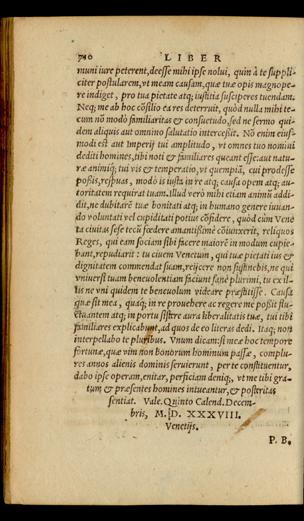 710 LIBER
muni iure peterent, deesse mihi ipse nolui, quin à te suppli-
citer postularem, vt meam causam, quæ tuæ opis magnope-
re indiget, pro tua pietate atq; iustitia susciperes tuendam.
Neq; me ab hoc cõsilio ea res deterruit, quòd nulla mihi te-
cum nõ modò familiaritas & consuetudo, sed ne sermo qui-
dem aliquis aut omnino salutatio intercessit. Nõ enim eius-
modi est aut Imperij tui amplitudo, vt omnes tuo nomini
dediti homines, tibi noti & familiares queant esse: aut natu-
ræ animiq; tui vis & temperatio, vt quempiã, cui prodesse
possis, respuas, modò is iusta in re atq; causa opem atq; au-
toritatem requirat tuam. Illud verò mihi etiam animũ addi-
dit, ne dubitarẽ tuæ bonitati atq; in humano genere iuuan-
do voluntati vel cupiditati potius cõfidere, quòd cùm Vene
ta ciuitas sese tecũ fœdere amantißimè cõiunxerit, reliquos
Reges, qui eam sociam sibi facere maiorẽ in modum cupie-
bant, repudiarit: tu ciuem Venetum, qui tuæ pietati ius &
dignitatem commendat suam, reijcere non sustinebis, ne qui
vniuersi tuam beneuolentiam faciunt sanè plurimi, tu ex il-
lis ne vni quidem te beneuolum videare præstitisse. Causa
quæ sit mea, quaq; in re prouehere ac regere me possit flu-
ctuantem atq; in portu sistere aura liberalitatis tuæ, tui tibi
familiares explicabunt, ad quos de eo literas dedi. Itaq; non
interpellabo te pluribus. Vnum dicam: si meæ hoc tempore
fortunæ, quæ vim non bonorum hominum passæ, complu-
res annos alienis dominis seruierunt, per te constituentur,
dabo ipse operam, enitar, perficiam deniq;, vt me tibi gra-
tum & præsentes homines intueantur, & posteritas
sentiat. Vale. Quinto Calend. Decem-
bris, M. D. XXXVIII.
Venetijs.
P. B.